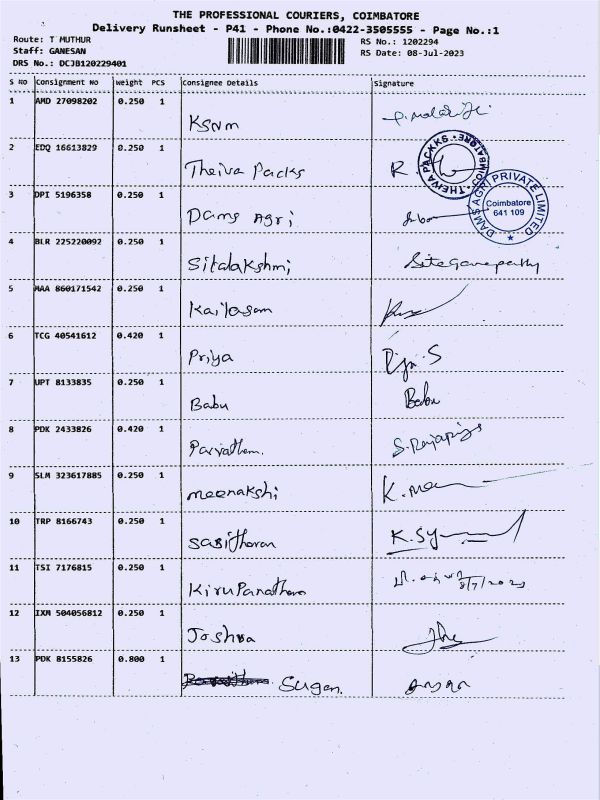 THE PROFESSIONAL COURIERS, COIMBATORE
Delivery Runsheet - P41 - Phone No.:0422-3505555 - Page No.:1
Route: T MUTHUR
RS No.: 1202294
Staff: GANESAN
RS Date: 08-Jul-2023
DRS No.: DCJB120229401
S NO Consignment No Weight PCS Consignee Details Signature
1 AMD 27098202 0.250 1 KSNM
2 EDQ 16613829 0.250 1 Theiva Packs R.
THEIVA PACKKS COIMBATORE
3 DPI 5196358 0.250 1 Dams Agri
DAMS AGRI PRIVATE LIMITED
Coimbatore
641 109
4 BLR 225220092 0.250 1 Sitalakshmi
5 MAA 860171542 0.250 1 Kailasam
6 TCG 40541612 0.420 1 Priya
7 UPT 8133835 0.250 1 Babu Babu
8 PDK 2433826 0.420 1
9 SLM 323617885 0.250 1 meenakshi
10 TRP 8166743 0.250 1
11 TSI 7176815 0.250 1 8/7/2023
12 IXM 504056812 0.250 1 Joshva
13 PDK 8155826 0.800 1 Sugan.